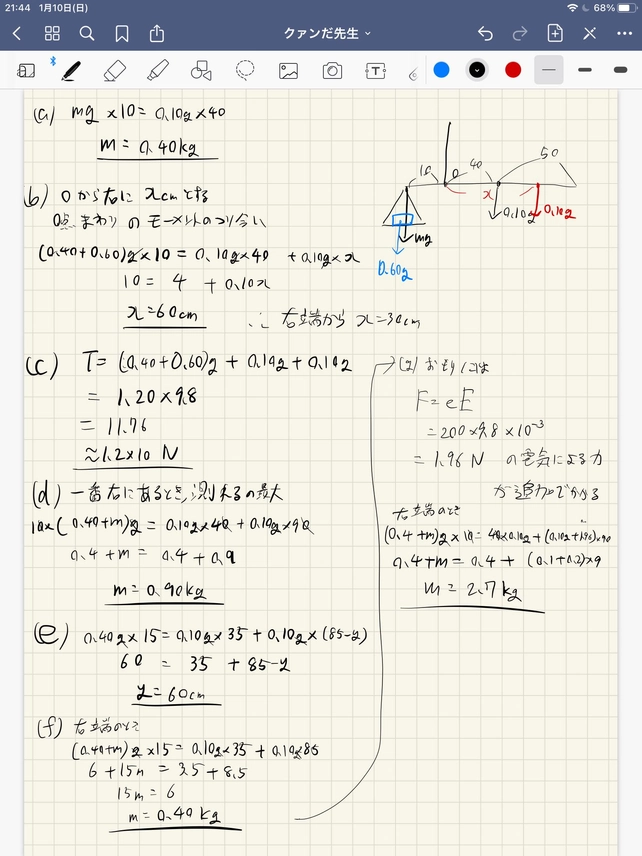 21:44 1月10日(日)
68%
クァンだ先生
(a) mg×10=0.10g×40
m=0.40kg
(b) Oから右にxcmとする
O点まわりのモーメントのつり合い
(0.40+0.60)g×10=0.10g×40+0.10g×x
10=4+0.10x
x=60cm
∴右端からx=30cm
(c) T=(0.40+0.60)g+0.10g+0.10g
=1.20×9.8
=11.76
≈1.2×10 N
(d) 一番右にあるとき, 測れるの最大
10×(0.40+m)g=0.10g×40+0.10g×90
0.4+m=0.4+0.9
m=0.90kg
(e) 0.40g×15=0.10g×35+0.10g×(85-y)
60=35+85-y
y=60cm
(f) 右端のとき
(0.40+m)g×15=0.10g×35+0.10g×85
6+15m=3.5+8.5
15m=6
m=0.40kg
10
O
40
50
x
0.10g
0.10g
mg
0.60g
(g) おもりには
F=eE
=200×9.8×10⁻³
=1.96N の電気による力
が追加でかかる
右端のとき
(0.4+m)g×10=40×0.10g+(0.10g+1.96)×90
0.4+m=0.4+(0.1+0.2)×9
m=2.7kg